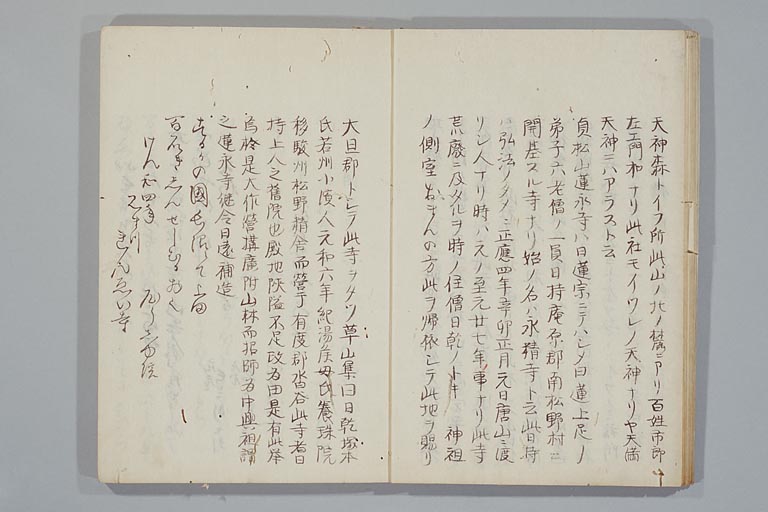 天神森トイフ所此山ノ北ノ麓ニアリ百姓市郎
左エ門和ナリ此社モイワレノ天神ナリヤ天満
天神ニハアラスト云
貞松山蓮永寺ハ日蓮宗ニテハシメ日蓮上足ノ
弟子六老僧ノ一員日持庵原郡南松野村ニ
開基スル寺ナリ始ノ名ハ永精寺ト云此日持
ハ弘法ノタメニ正應四年辛卯正月元日唐山ニ渡
リシ人ナリ時ハ元ノ至元廿七年事ナリ此寺
荒廢ニ及タルヲ時ノ住僧日乾ノトキ 神祖
ノ側室おまんの方此ヲ帰依シテ此地ヲ賜リ
大旦那トシテ此寺ヲタツ草山集曰日乾塚本
氏若州小濱人元和六年紀湯侯母氏養珠院
移駿州松野精舎而營于有度郡沓谷此寺者日
持上人之舊院也殿地陜隘不足改為田是有此挙
為於是大作營構廣附山林而招師為中興祖謂
之蓮永寺継令日遠補造
するかの國
けん和四年